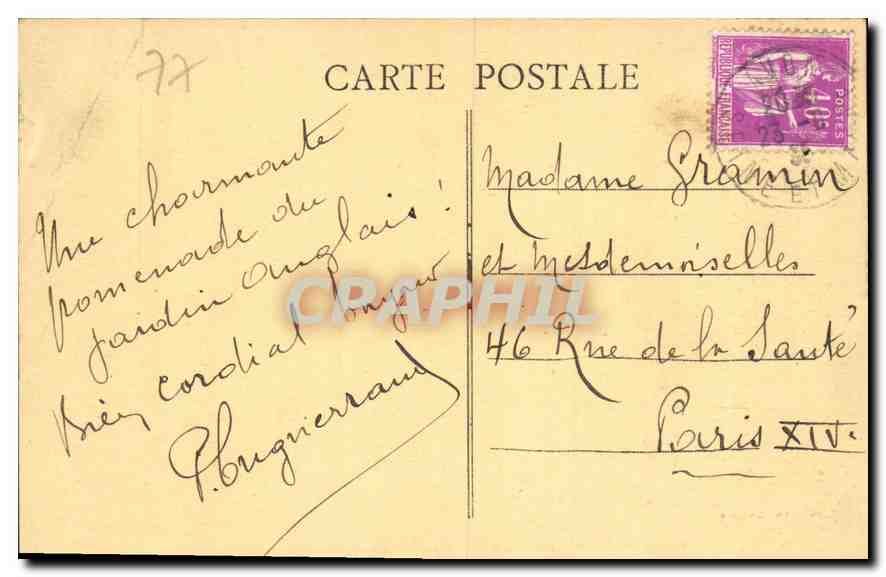 77
CARTE POSTALE
Une charmante
promenade du
jardin anglais !
Bien cordial
Madame Gramin
et Mesdemoiselles
46 Rue de la Santé
Paris XIV.
REPUBLIQUE FRANÇAISE
POSTES
40c
CPAPHIL